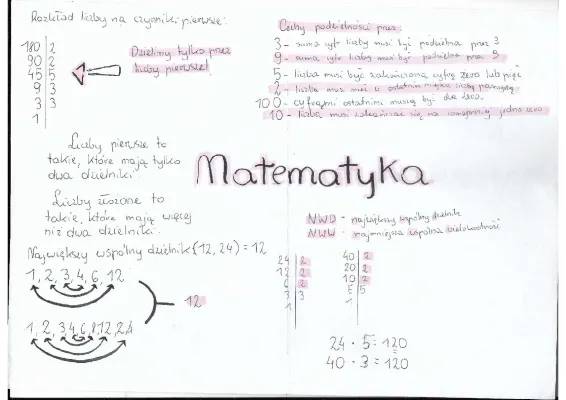 Rozkład liczby na czynniki pierwsze:
180 | 2
90 | 2
45 | 5
9 | 3
3 | 3
1
Dzielimy tylko przez
liczby pierwsze!
Cechy podzielności przez:
3 - suma cyfr liczby musi być podzielna przez 3
9 - suma cyfr liczby musi być podzielna przez 9
5 - liczba musi być zakończona cyfrą zero lub pięć
2 - liczba musi mieć w ostatnim miejscu liczbę parzystą
100 - cyframi ostatnimi muszą być dwa zera.
10 - liczba musi zakończać się na co najmniej jedno zero
Liczby pierwsze to
takie, które mają tylko
dwa dzielniki
Matematyka
Liczby złożone to
takie, które mają więcej
niż dwa dzielniki.
NWD - największy wspólny dzielnik
NWW - najmniejsza wspólna wielokrotność
Największy wspólny dzielnik (12, 24) = 12
1, 2, 3, 4, 6, 12
12
1, 2, 3, 4, 6, 8, 12, 24
24 | 2
12 | 2
6 | 2
3 | 3
1
40 | 2
20 | 2
10 | 2
5 | 5
1
24 · 5 = 120
40 · 3 = 120